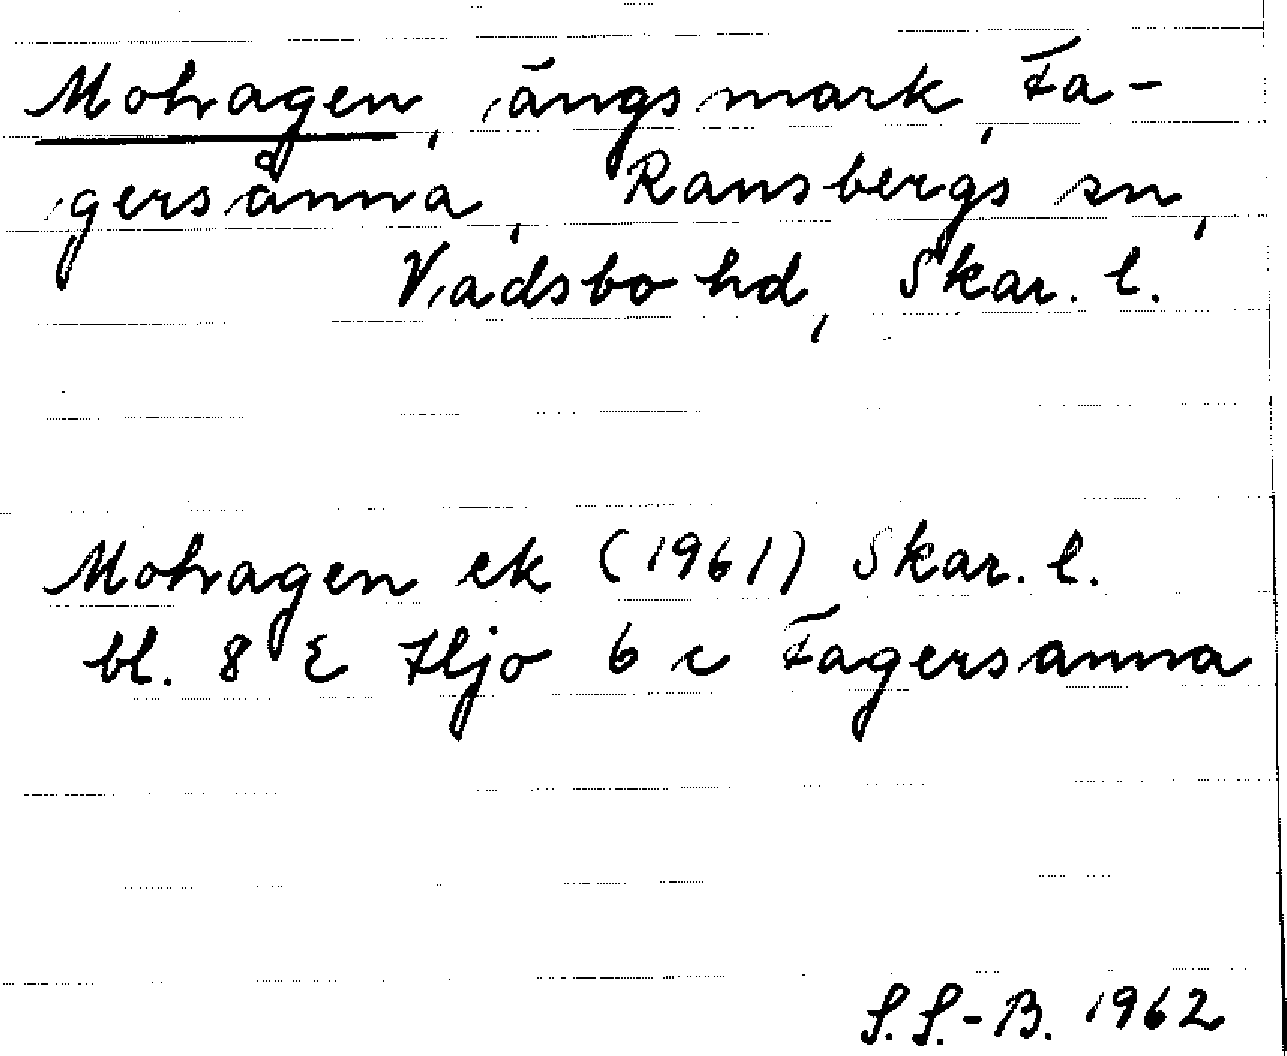 Mohagen, ängsmark, Fa-
gersånna, Ransbergs sn,
Vadsbo hd, Skar. l.
Mohagen ek (1961) Skar. l.
bl. 8 E Hjo 6 c Fagersanna
S.S.-B. 1962